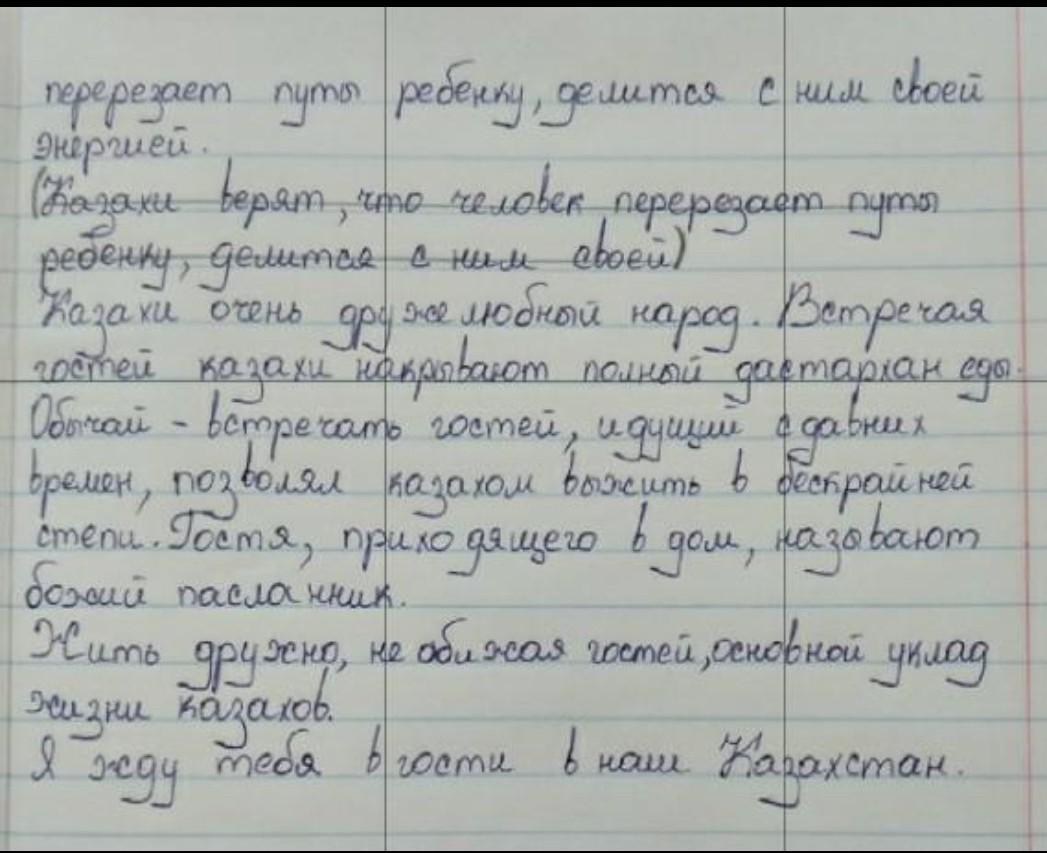 перерезает путы ребенку, делится с ним своей
энергией.
(Казахи верят, что человек перерезает путы
ребенку, делится с ним своей)
Казахи очень дружелюбный народ. Встречая
гостей казахи накрывают полный дастархан еды.
Обычай - встречать гостей, идущий с давних
времен, позволял казахом выжить в бескрайней
степи. Гостя, приходящего в дом, называют
божий пасланник.
Жить дружно, не обижая гостей, основной уклад
жизни казахов.
Я жду тебя в гости в наш Казахстан.